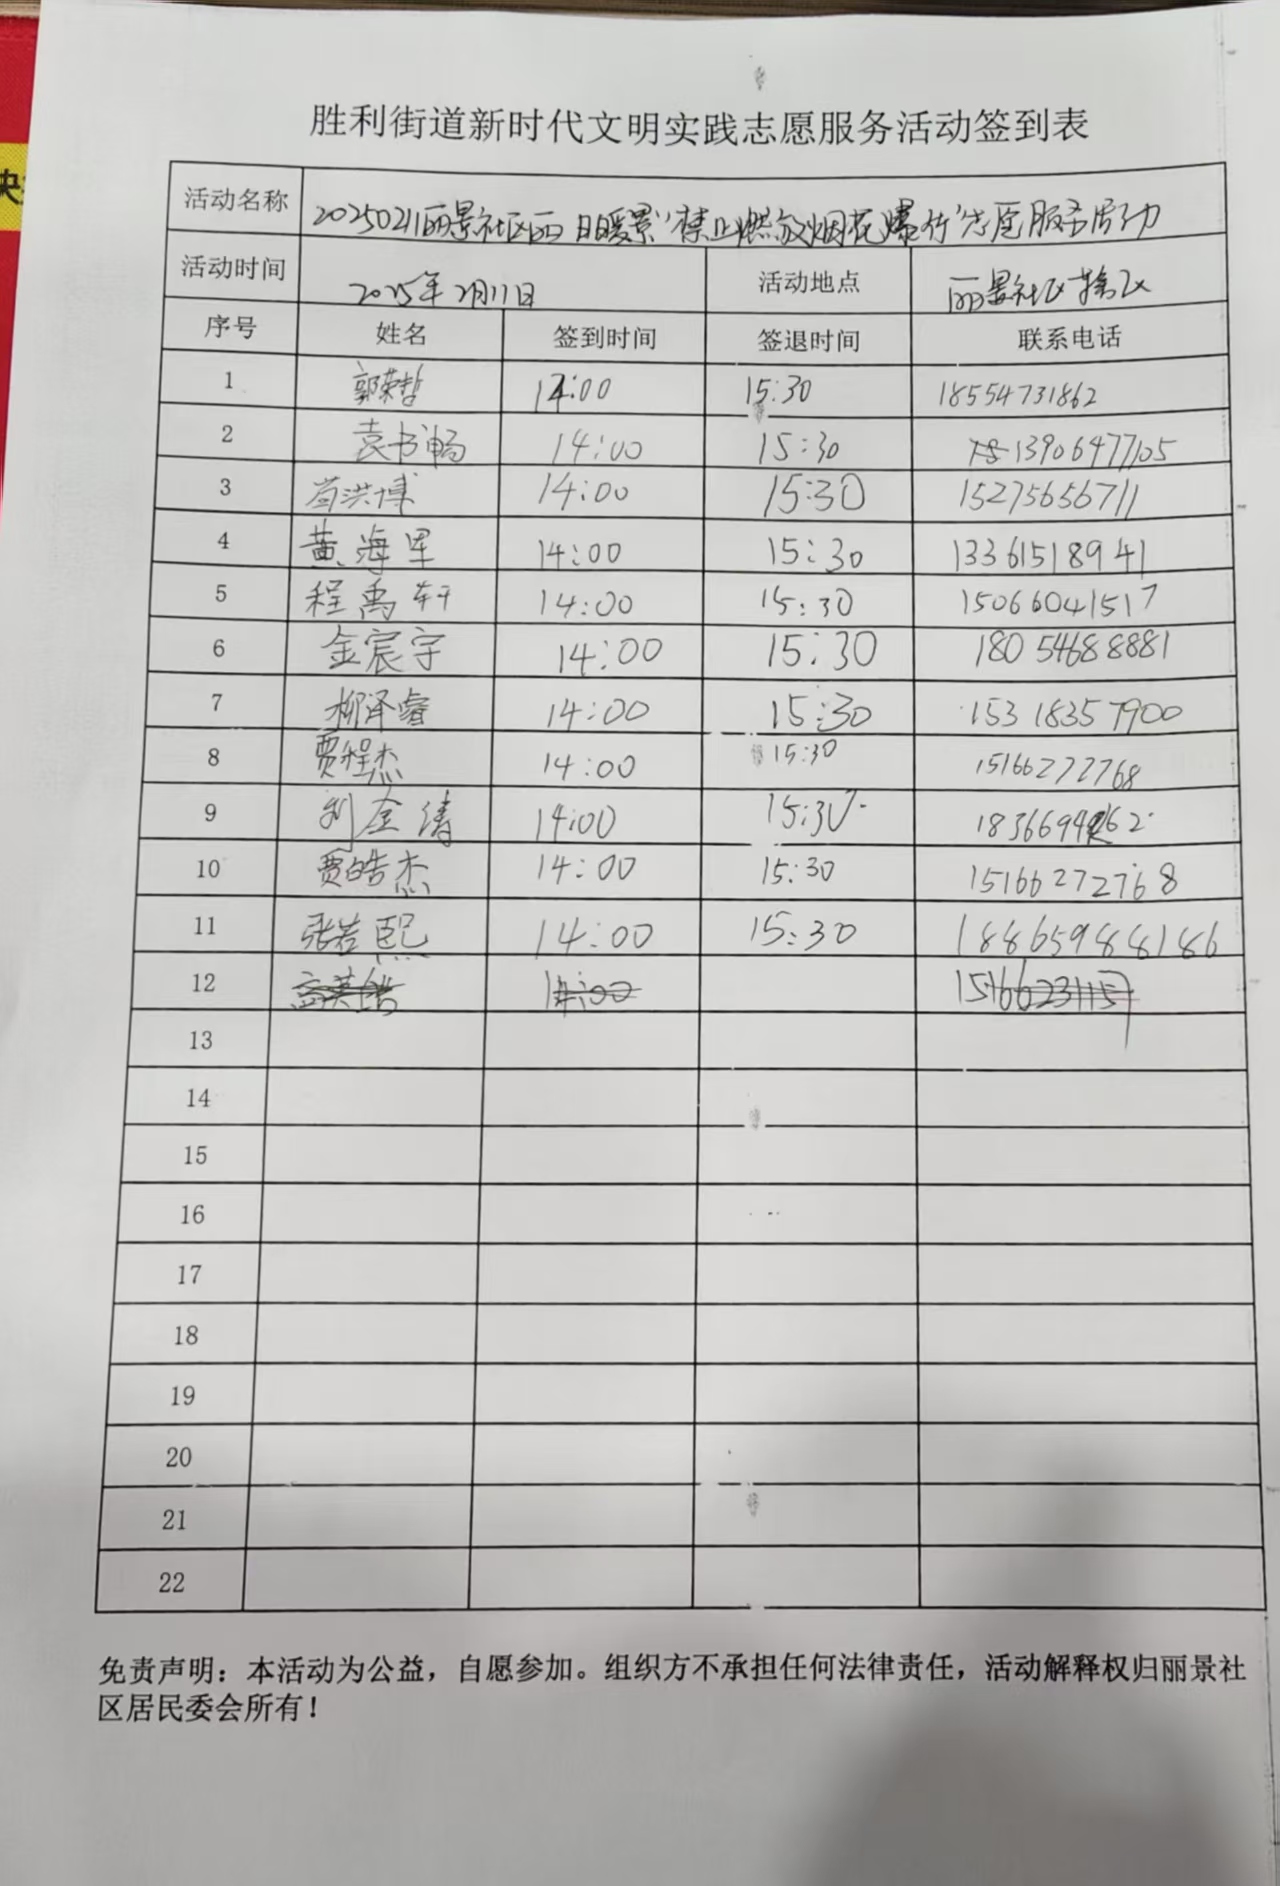 胜利街道新时代文明实践志愿服务活动签到表
活动名称 20250211丽景社区丽日暖景"禁止燃放烟花爆竹"志愿服务活动
活动时间 2025年2月11日 活动地点 丽景社区辖区
序号 姓名 签到时间 签退时间 联系电话
1 郭荣哲 14:00 15:30 18554731862
2 袁书畅 14:00 15:30 13906477105
3 苟洪博 14:00 15:30 15275656711
4 黄海军 14:00 15:30 13361518941
5 程禹轩 14:00 15:30 15066041517
6 金宸宇 14:00 15:30 18054688881
7 柳泽睿 14:00 15:30 15318357900
8 贾程杰 14:00 15:30 15166272768
9 刘金涛 14:00 15:30
10 贾皓杰 14:00 15:30 15166272768
11 张若熙 14:00 15:30 18865988186
12 14:00
13
14
15
16
17
18
19
20
21
22
免责声明：本活动为公益，自愿参加。组织方不承担任何法律责任，活动解释权归丽景社
区居民委会所有！